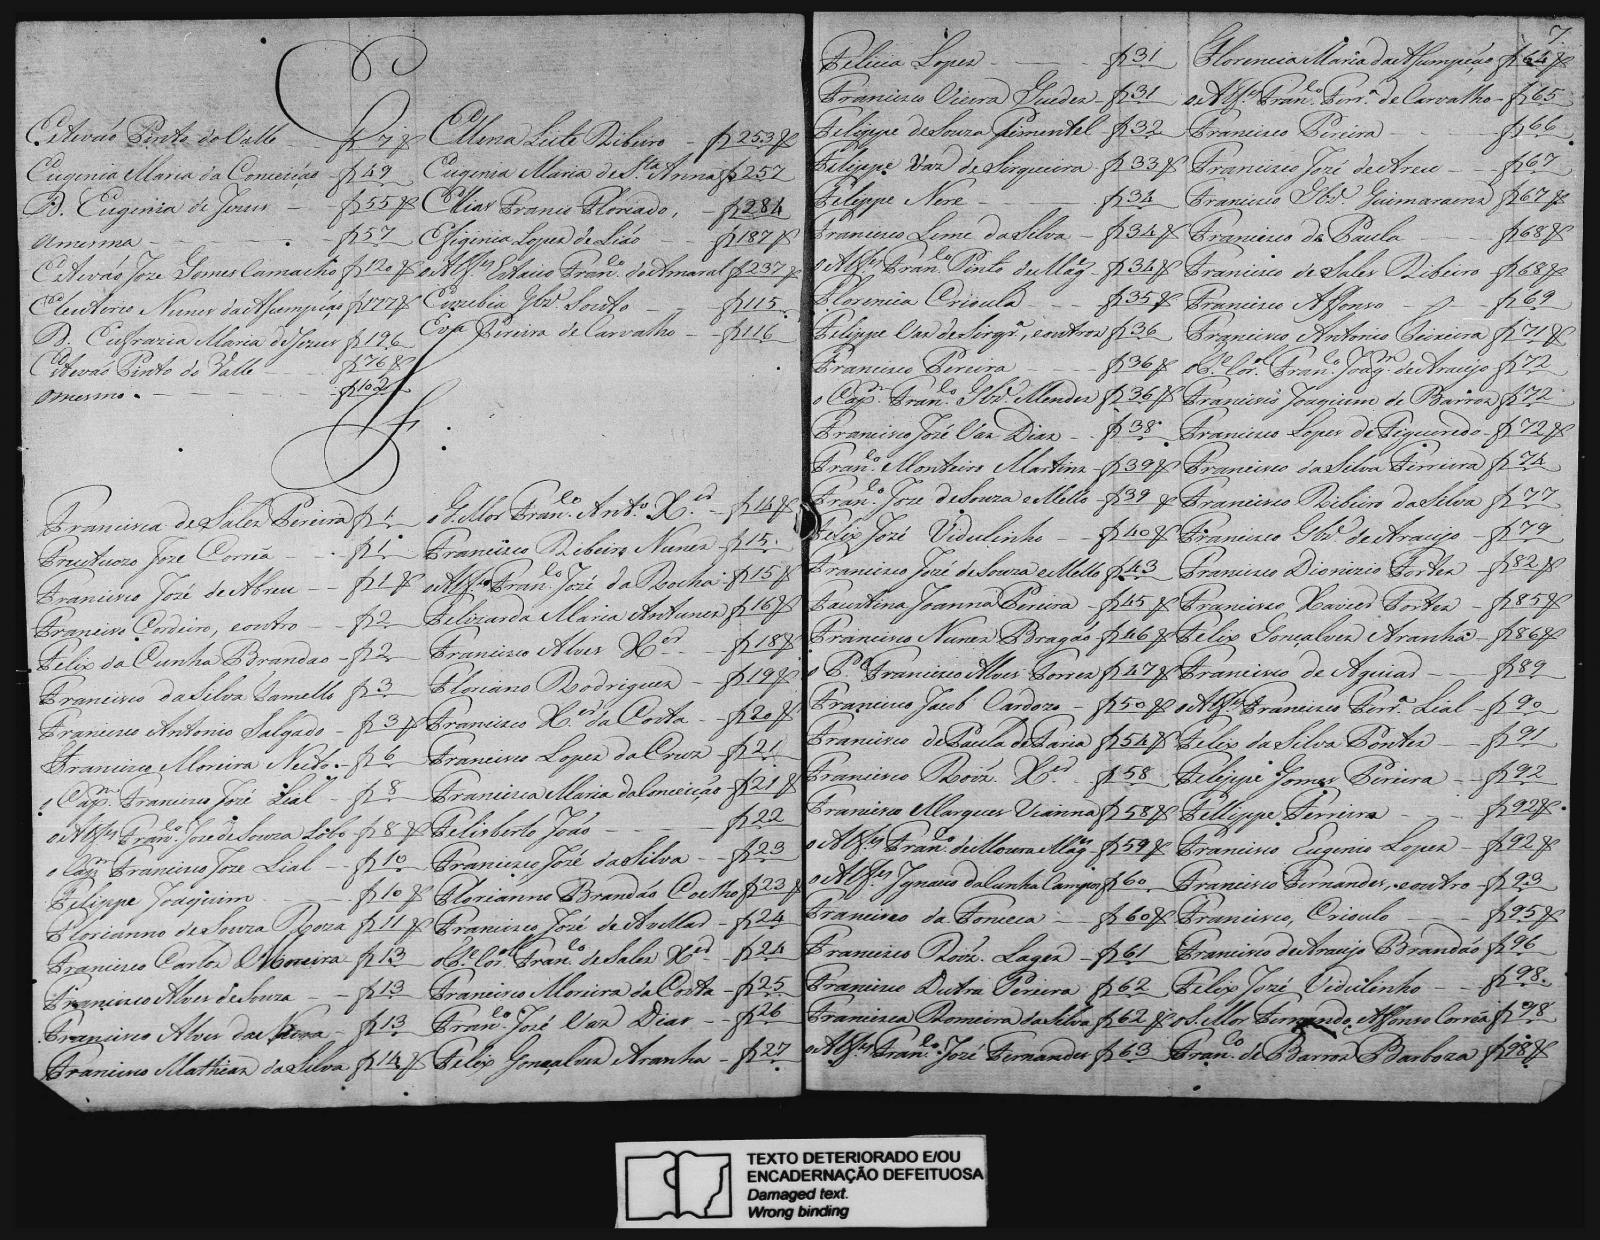 E
Estevaõ Pinto do Valle - f 7 V
Eugenia Maria da Conceiçaõ - f 49
D. Eugenia de Jezus - f 55 V
amesma - f 57
Estevaõ Joze Gomes Camacho f 120 V
Eleuterio Nunes da Assumpçaõ f 177 V
D. Eufrazia Maria de Jezus f 196
Estevaõ Pinto do Valle - f 76 V
omesmo. - f 102
Ellena Leite Ribeiro - f 253 V
Eugenia Maria de S.ta Anna f 257
Elias Franco Floriado, - f 284
Efigenia Lopes de Liaõ - f 187 V
o Alf.es Estacio Fran.co do Amaral f 237 V
Euzebia Glz' Souto - f 115
Eva Pereira de Carvalho - f 116
F
Francisca de Sales Pereira f 1
Fructuozo Joze Corrêa - f 1
Francisco José de Abreu - f 1 V
Francisco Cordeiro, eoutro - f 2
Felix da Cunha Brandaõ - f 2
Francisco da Silva Vamello f 3
Francisco Antonio Salgado - f 3 V
Francisco Moreira Neto - f 6
o Cap.m Francisco José Lial - f 8
o Alf.es Fran.co Joze de Souza Lobo - f 8 V
o Cap.m Francisco Joze Lial - f 10
Felippe Joaquim - f 10 V
Florianno de Souza Roza f 11 V
Francisco Carlos Moreira f 13
Francisco Alves de Souza - f 13
Francisco Alves da Neva - f 13
Francisco Mathias da Silva f 14 V
o G. Mor Fran.co Ant.o X.er - f 14 V
Francisco Ribeiro Nunes - f 15
o Alf.es Fran.co José da Rocha - f 15 V
Felizarda Maria Antunes f 16 V
Francisco Alves X.er - f 18 V
Floriano Rodrigues - f 19 V
Francisco X.er da Costa - f 20 V
Francisco Lopes da Cruz - f 21
Francisca Maria da Conceiçaõ f 21 V
Felisberto Joaõ - f 22
Francisco José da Silva - f 23
Florianno Brandaõ Coelho f 23 V
Francisco José de Avellar - f 24
o P.e Cor.el Fran.co de Sales X.er - f 24
Francisco Moreira da Costa - f 25
Fran.co José Vaz Dias - f 26
Felix Gonçalves Aranha - f 27
Felicia Lopes - f 31
Francisco Vieira Guedes - f 31
Felippe de Souza Pimentel - f 32
Felippe Vaz de Sirqueira f 33 V
Felippe Nere - f 34
Francisco Leme da Silva - f 34 V
o Alf.es Fran.co Pinto de Mag. - f 34 V
Florencia Crioula - f 35 V
Felippe Vaz de Sirqr.a, eoutros f 36
Francisco Pereira - f 36 V
o Cap.m Fran.co Glz' Mendes f 36 V
Francisco José Vaz Dias - f 38
Fran.co Monteiro Martins - f 39 V
Fran.co Joze de Souza e Mello - f 39 V
Felix José Vidulinho - f 40 V
Francisco José de Souza e Mello f 43
Faustina Joanna Pereira - f 45 V
Francisco Nunes Bragaõ f 46 V
o P.e Francisco Alves Torres f 47 V
Francisco Jacob Cardozo - f 50 V
Francisco de Paula de Faria f 54 V
Francisco Roiz. X.er - f 58
Francisco Marques Vianna f 58 V
o Alf.es Fran.co de Moura Mag. f 59 V
o Alf.es Ignacio da Cunha Campos f 60
Francisco da Fonseca - f 60 V
Francisco Roiz. Lages - f 61
Francisco Dutra Pereira f 62
Francisca Romeira da Silva f 62 V
o Alf.es Fran.co José Fernandes f 63
7
Florencia Maria da Assumpçaõ f 64 V
o Alf.es Fran.co Ferr.a de Carvalho - f 65
Francisco Pereira - f 66
Francisco José de Areu - f 67
Francisco Glz' Guimaraens f 67 V
Francisco de Paula - f 68 V
Francisco de Sales Ribeiro - f 68 V
Francisco Affonso - f 69
Francisco Antonio Teixeira f 71 V
o P.e Cor.el Fran.co Joaq.m de Araujo f 72
Francisco Joaquim de Barros f 72
Francisco Lopes de Figueredo - f 72 V
Francisco da Silva Ferreira f 74
Francisco Ribeiro da Silva f 77
Francisco Glz' de Araujo - f 79
Francisco Dionizio Fortes - f 82 V
Francisco Xavier Fortes - f 85 V
Felix Gonçalves Aranha - f 86 V
Francisco de Aguiar - f 89
o Alf.es Francisco Ferr.a Lial - f 90
Felix da Silva Pontes - f 91
Felippe Gomes Pereira - f 92
Fellippe Ferreira - f 92 V
Francisco Eugenio Lopes - f 92 V
Francisco Fernandes, eoutro - f 93
Francisco, Crioulo - f 95 V
Francisco de Araujo Brandaõ f 96
Felix José Vidulinho - f 98
o S. Mor Fernando Affonso Corrêa f 98
Fran.co de Barros Barboza f 98 V
TEXTO DETERIORADO E/OU
ENCADERNAÇÃO DEFEITUOSA
Damaged text.
Wrong binding